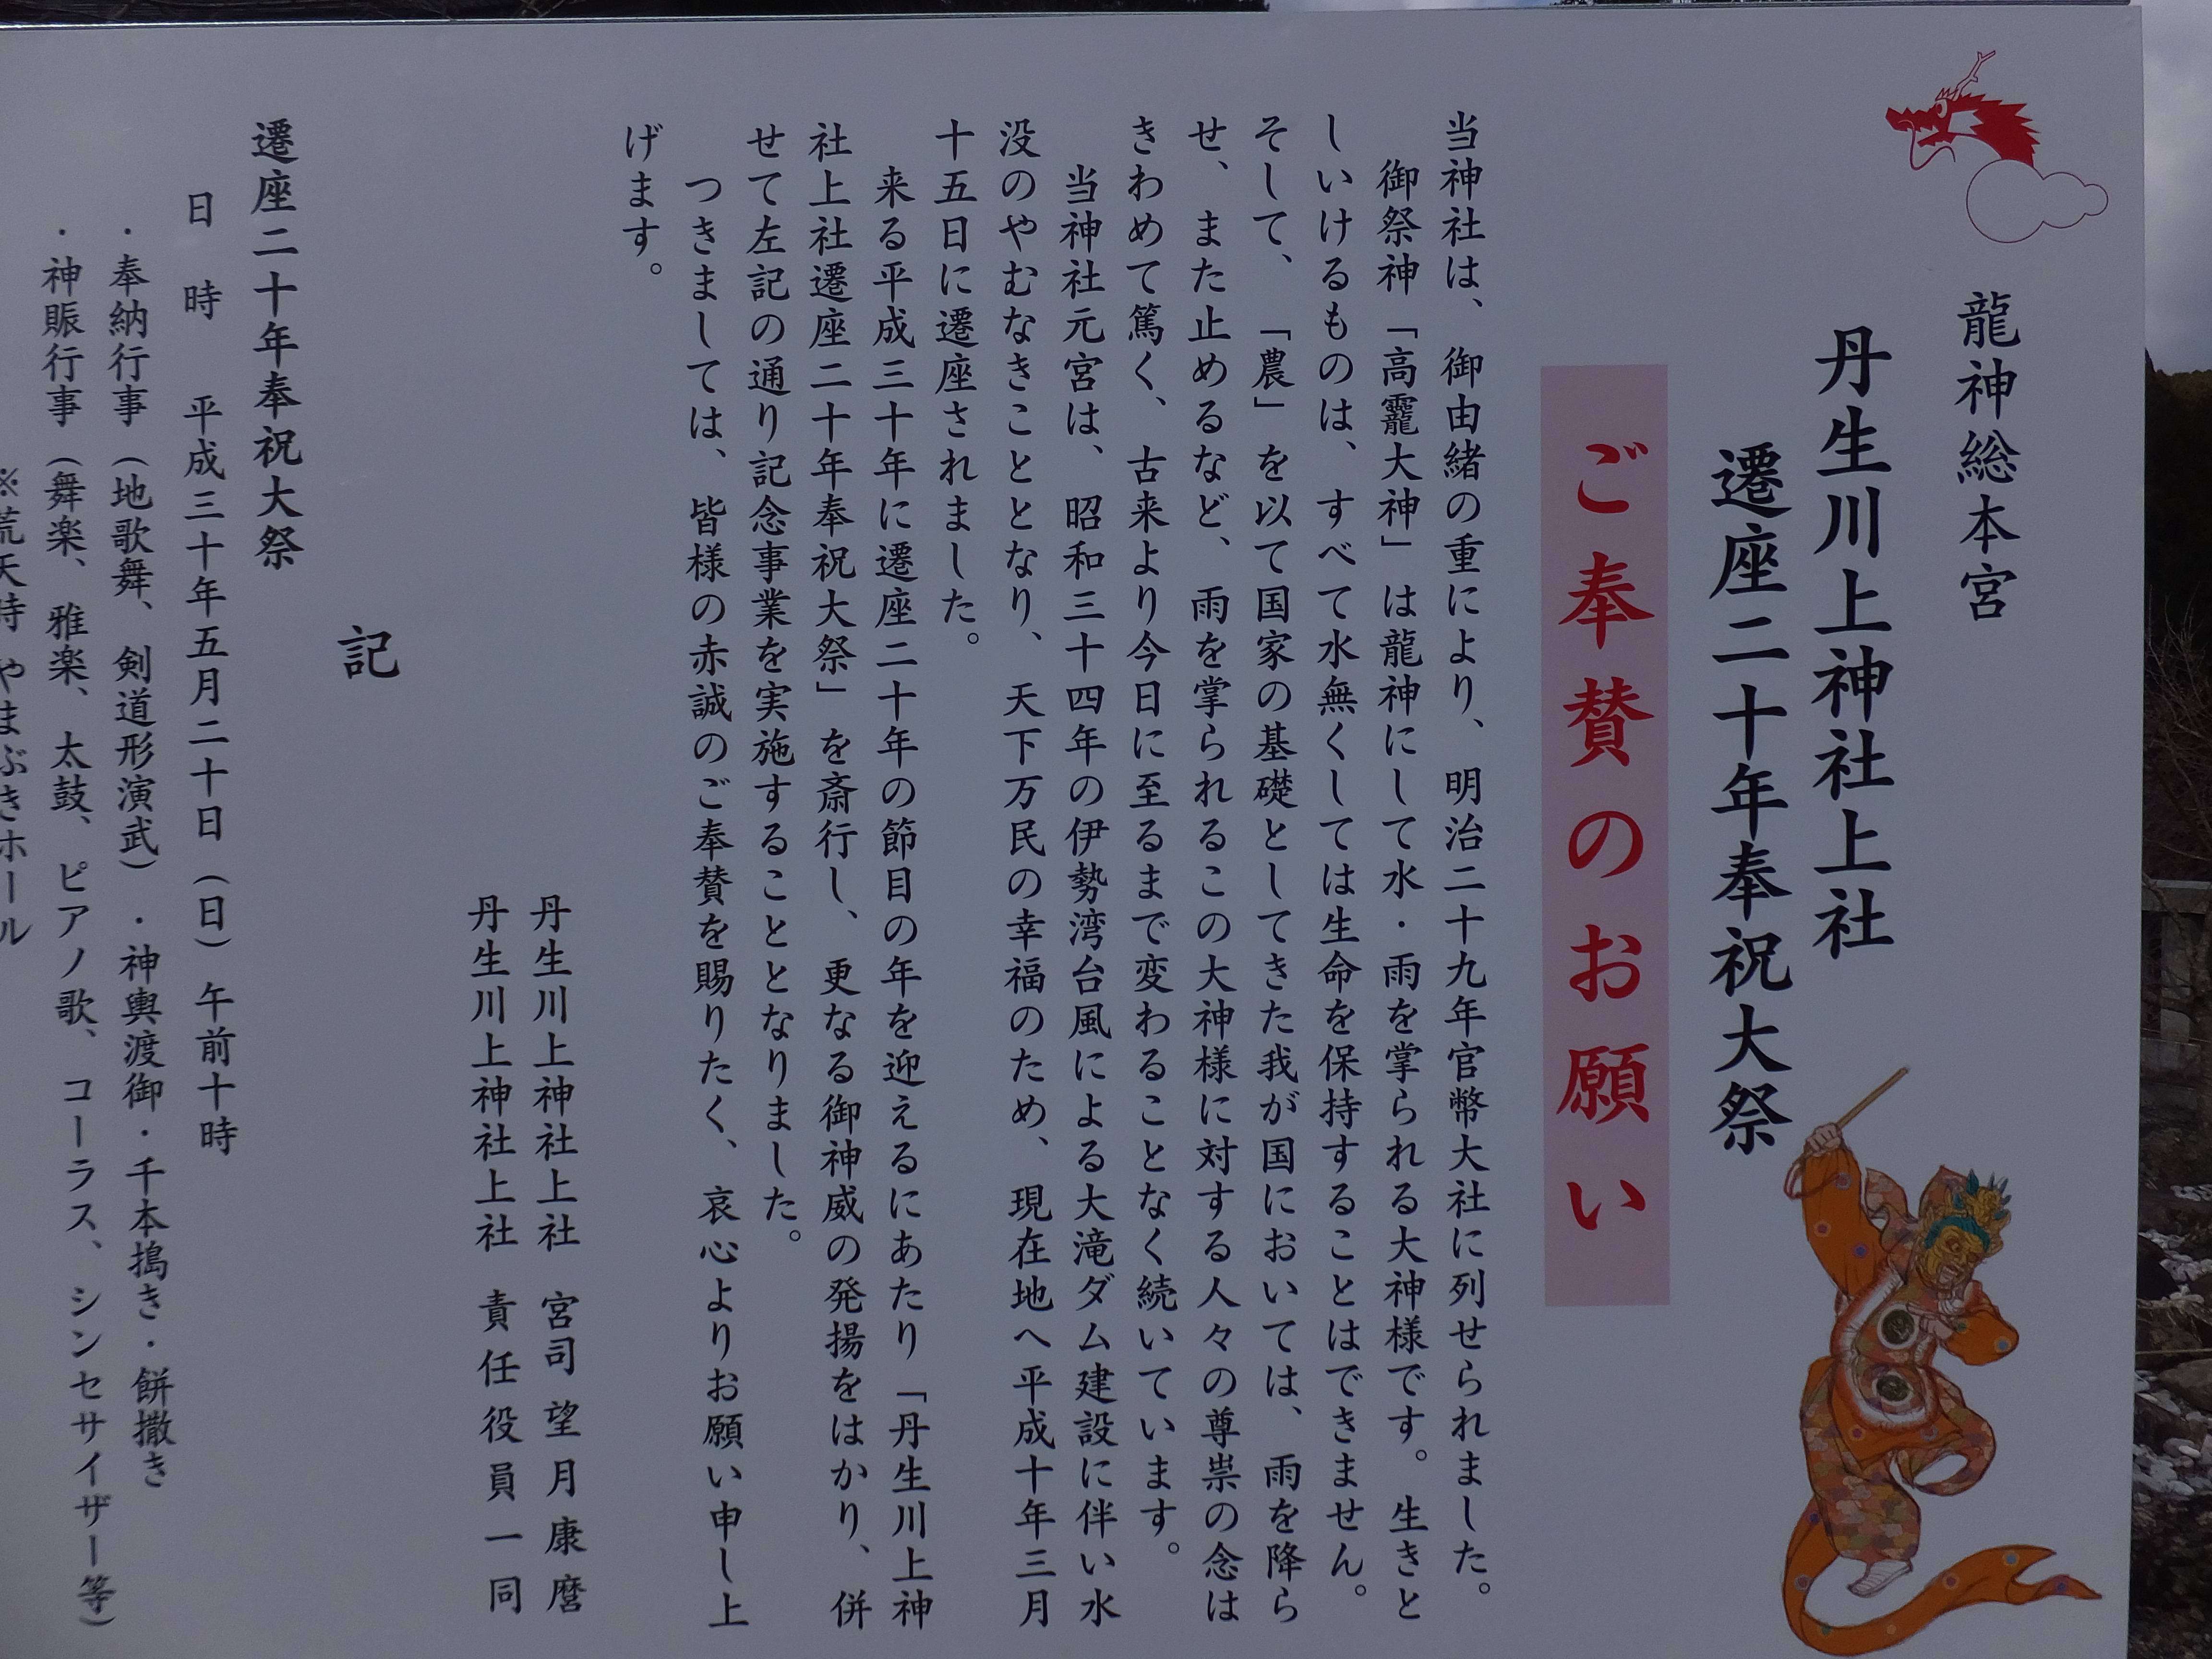 龍神総本宮
丹生川上神社上社
遷座二十年奉祝大祭
ご奉賛のお願い
当神社は、御由緒の重により、明治二十九年官幣大社に列せられました。
御祭神「高龗大神」は龍神にして水・雨を掌られる大神様です。生きと
しいけるものは、すべて水無くしては生命を保持することはできません。
そして、「農」を以て国家の基礎としてきた我が国においては、雨を降ら
せ、また止めるなど、雨を掌られるこの大神様に対する人々の尊崇の念は
きわめて篤く、古来より今日に至るまで変わることなく続いています。
当神社元宮は、昭和三十四年の伊勢湾台風による大滝ダム建設に伴い水
没のやむなきこととなり、天下万民の幸福のため、現在地へ平成十年三月
十五日に遷座されました。
来る平成三十年に遷座二十年の節目の年を迎えるにあたり「丹生川上神
社上社遷座二十年奉祝大祭」を斎行し、更なる御神威の発揚をはかり、併
せて左記の通り記念事業を実施することとなりました。
つきましては、皆様の赤誠のご奉賛を賜りたく、哀心よりお願い申し上
げます。
丹生川上神社上社 宮司 望月康麿
丹生川上神社上社 責任役員一同
記
遷座二十年奉祝大祭
日 時 平成三十年五月二十日（日）午前十時
・奉納行事（地歌舞、剣道形演武）・神輿渡御・千本搗き・餅撒き
・神賑行事（舞楽、雅楽、太鼓、ピアノ歌、コーラス、シンセサイザー等）
※荒天時 やまぶきホール